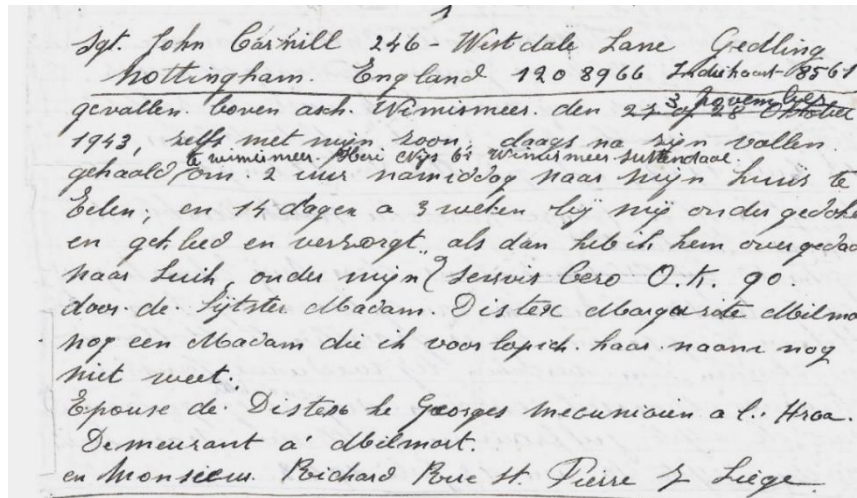 1
Sgt. John Carnill 246 - Westdale Lane Gedling
Nottingham. England 1208966 8561
gevallen. boven asch. Wimismeer. den 27 of 28 Oktober
3 november
1943, zelfs met mijn zoon, daags na zijn vallen.
te wimismeer. bi Winismeer. Sutendaal.
gehaald om. 2 uur namiddag naar mijn huis te
Eelen, en 14 dagen a 3 weken bij mij ondergedoke
en gekleed en verzorgt, als dan heb ik hem overgedaa
naar Luik, onder mijn Servis Cero O.K. 90.
door de. Madam. Distex Margarite Milmo
nog een Madam die ik voorlopich. haar naam nog
niet weet.
Epouse de. Distexhe Georges mecuniciein a l.
Demeurant a' Milmort.
en Monsieur. Richard Rue st Pierre 7 Liège.